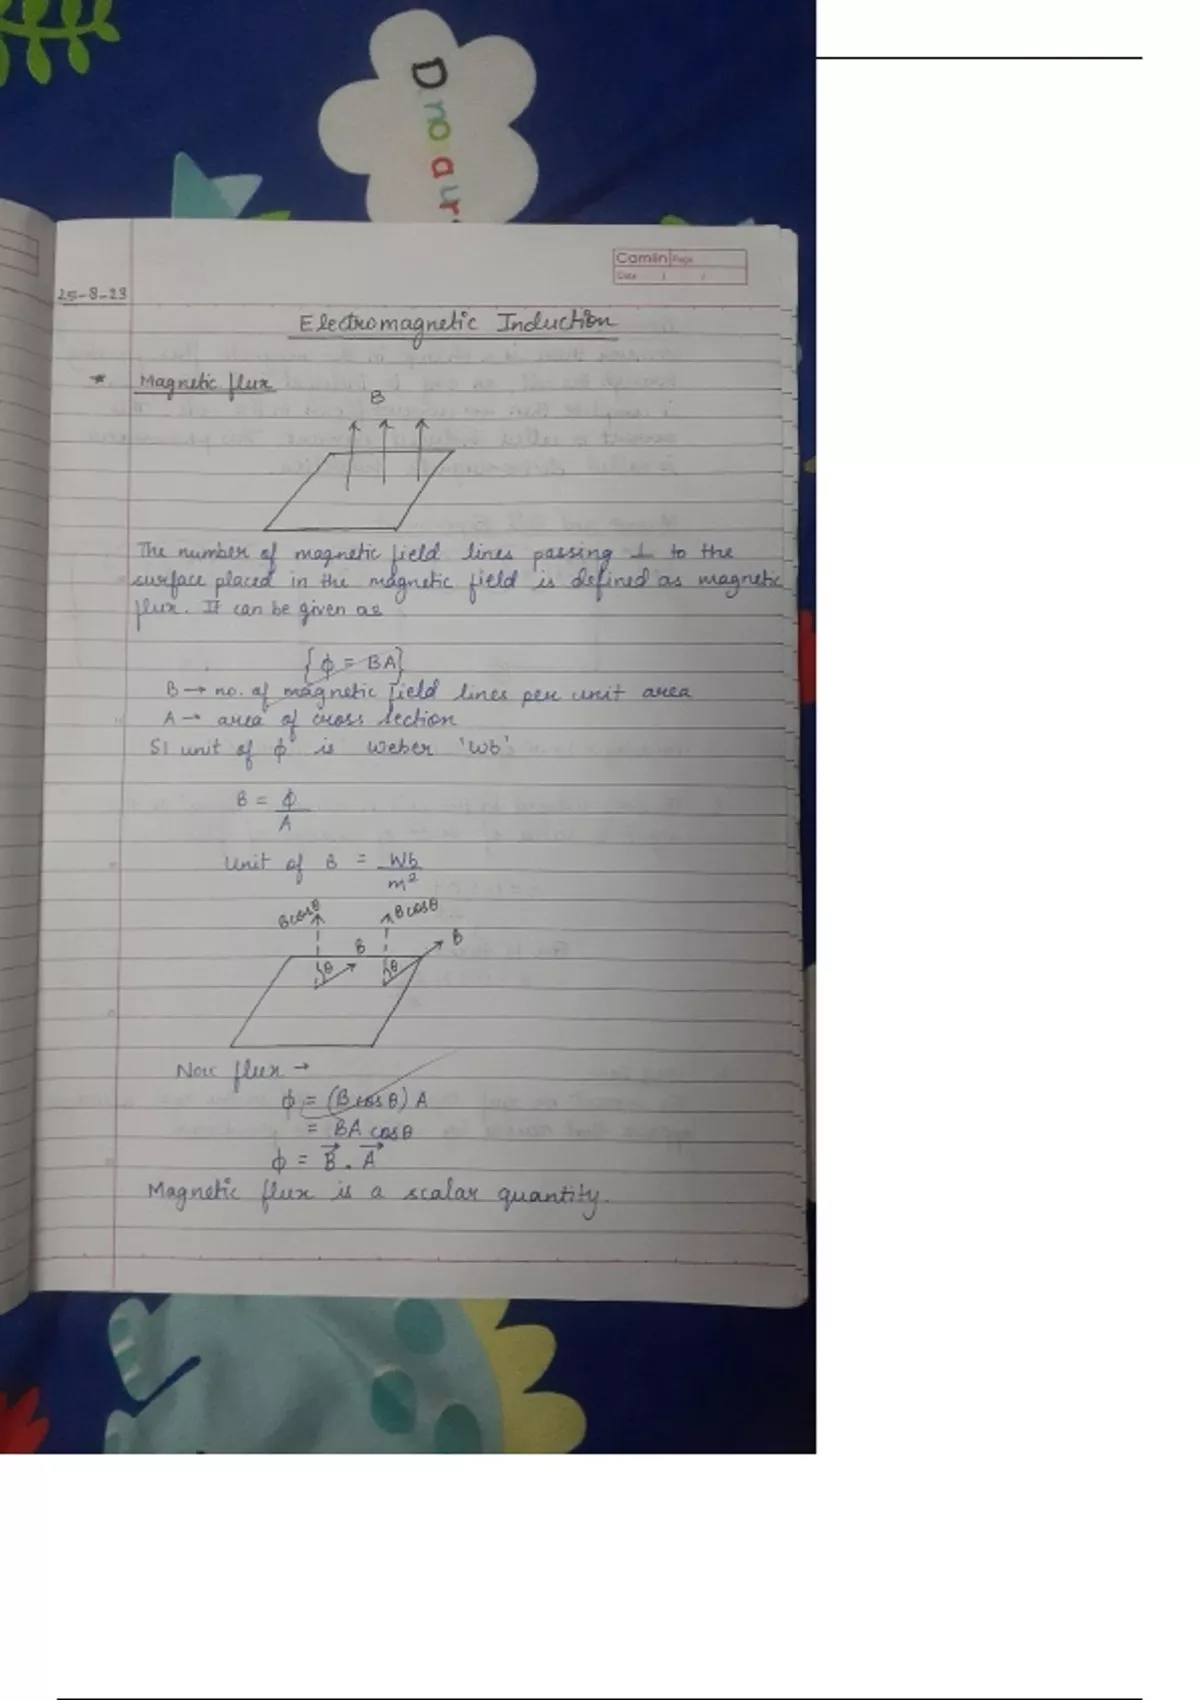 Dnoaur
Camlin Page
Date / /
25-8-23
Electromagnetic Induction
* Magnetic flux
B
The number of magnetic field lines passing ⊥ to the
surface placed in the magnetic field is defined as magnetic
flux. It can be given as
{ϕ = BA}
B → no. of magnetic field lines per unit area
A → area of cross section
SI unit of ϕ is weber 'Wb'
B = ϕ
A
Unit of B = Wb
m²
B cosθ B cosθ
B B
θ θ
Now flux →
ϕ = (B cosθ) A
= BA cosθ
ϕ = B⃗ . A⃗
Magnetic flux is a scalar quantity.